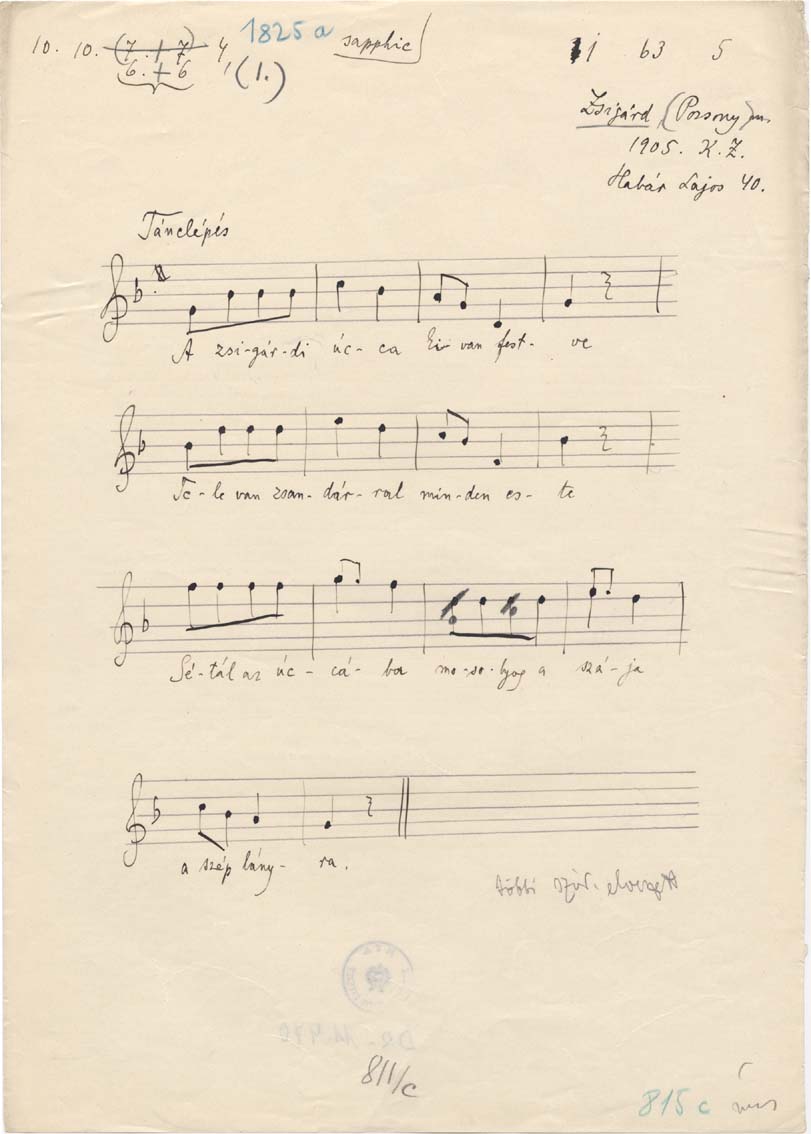 10. 10. (7. + 7) 4
1825 a
sapphic
1 b3 5
6. + 6
(1.)
Zsigárd (Pozsony) m.
1905. K. Z.
Habár Lajos 40.
Tánclépés
A zsi-gár-di úc-ca ki van fest-ve
Te-le van zsan-dár-ral min-den es-te
Sé-tál az úc-cá-ba mo-so-lyog a szá-ja
a szép lány-ra.
többi szöv. elveszett
811/c
815 c